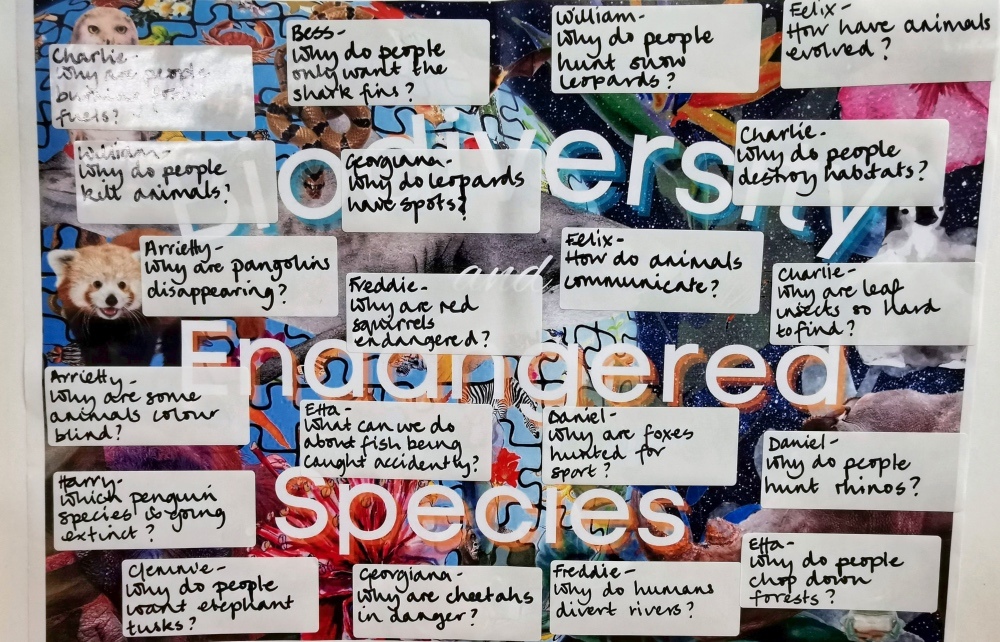 Charlie-
Why are people
burning fossil
fuels?
Bess-
Why do people
only want the
shark fins?
William-
Why do people
hunt snow
leopards?
Felix-
How have animals
evolved?
William-
Why do people
kill animals?
Georgiana-
Why do leopards
have spots?
Charlie-
Why do people
destroy habitats?
Biodiversity
Arrietty-
Why are pangolins
disappearing?
Freddie-
Why are red
squirrels
endangered?
and
Felix-
How do animals
communicate?
Charlie-
Why are leaf
insects so hard
to find?
Endangered
Arrietty-
Why are some
animals colour
blind?
Etta-
What can we do
about fish being
caught accidently?
Daniel-
Why are foxes
hunted for
sport?
Daniel-
Why do people
hunt rhinos?
Harry-
Which penguin
species is going
extinct?
Species
Clemmie-
Why do people
want elephant
tusks?
Georgiana-
Why are cheetahs
in danger?
Freddie-
Why do humans
divert rivers?
Etta-
Why do people
chop down
forests?